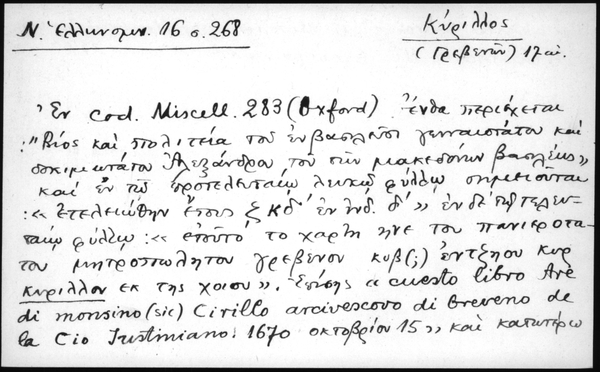 Ν. Ἑλληνομν. 16 σ. 268
Κύριλλος
(Γρεβενῶν) 17 αἰ.
Ἐν cod. Miscell. 283 (Oxford) ἔνθα περιέχεται
: "Βίος καὶ πολιτεία τοῦ ἐν βασιλεῦσι γενναιοτάτου καὶ
δοκιμωτάτου Ἀλεξάνδρου τοῦ τῶν μακεδόνων βασιλέως"
καὶ ἐν τῷ προτελευταίῳ λευκῷ φύλλῳ σημειοῦται
: «ἐτελειώθην ἔτους ζκδ' ἐν ἰνδ. δ'» ἐν δὲ τῷ τελευ-
ταίῳ φύλλῳ : «ἐτοῦτο το χαρτη ηνε του πανιεροτα-
του μητροπωλητου γρεβενου κυβ(;) ἐντζηου κυρ
κυριλλου εκ της χοιου». Ἐπίσης «cuesto libro Are
di monsino (sic) Cirillo arcivescovo di Greveno de
la Cio Iustiniano: 1670 οκτοβρίου 15» καὶ κατωτέρω